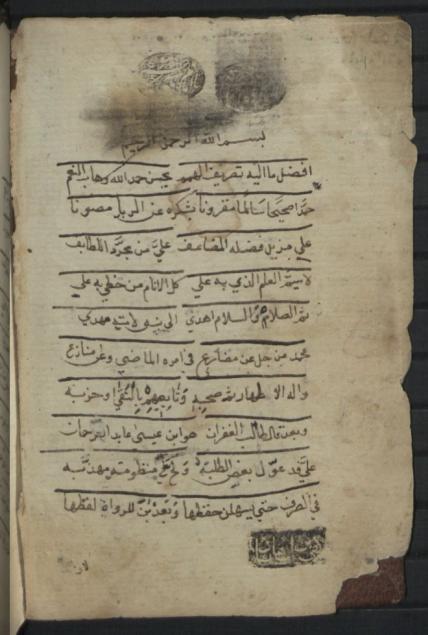 بسم الله الرحمن الرحيم
افضل ما اليه تصريف الهمم يحسن حمد الله وهاب النعم
حمدا صحيحا سالما مقرونا بشكره عن الريا مصونا
على جزيل فضله المضاعف علي من مجرد اللطايف
لا سيم العلم الذي به علي كل الانام من حظي به علي
ثم الصلاة والسلام اهدي الى نبي لامته مهدي
محمد من جل عن مضارع في امره الماضي وعن منازع
واله الاطهار ثم صحبه وتابعيهم بالتقي وحزبه
وبعد قال طالب الغفران هو ابن عيسى عابد الرحمان
علي قد عول بعض الطلبه في منظومة مهذبه
في الصرف حتى يسهلن حفظها للرواة لفظها